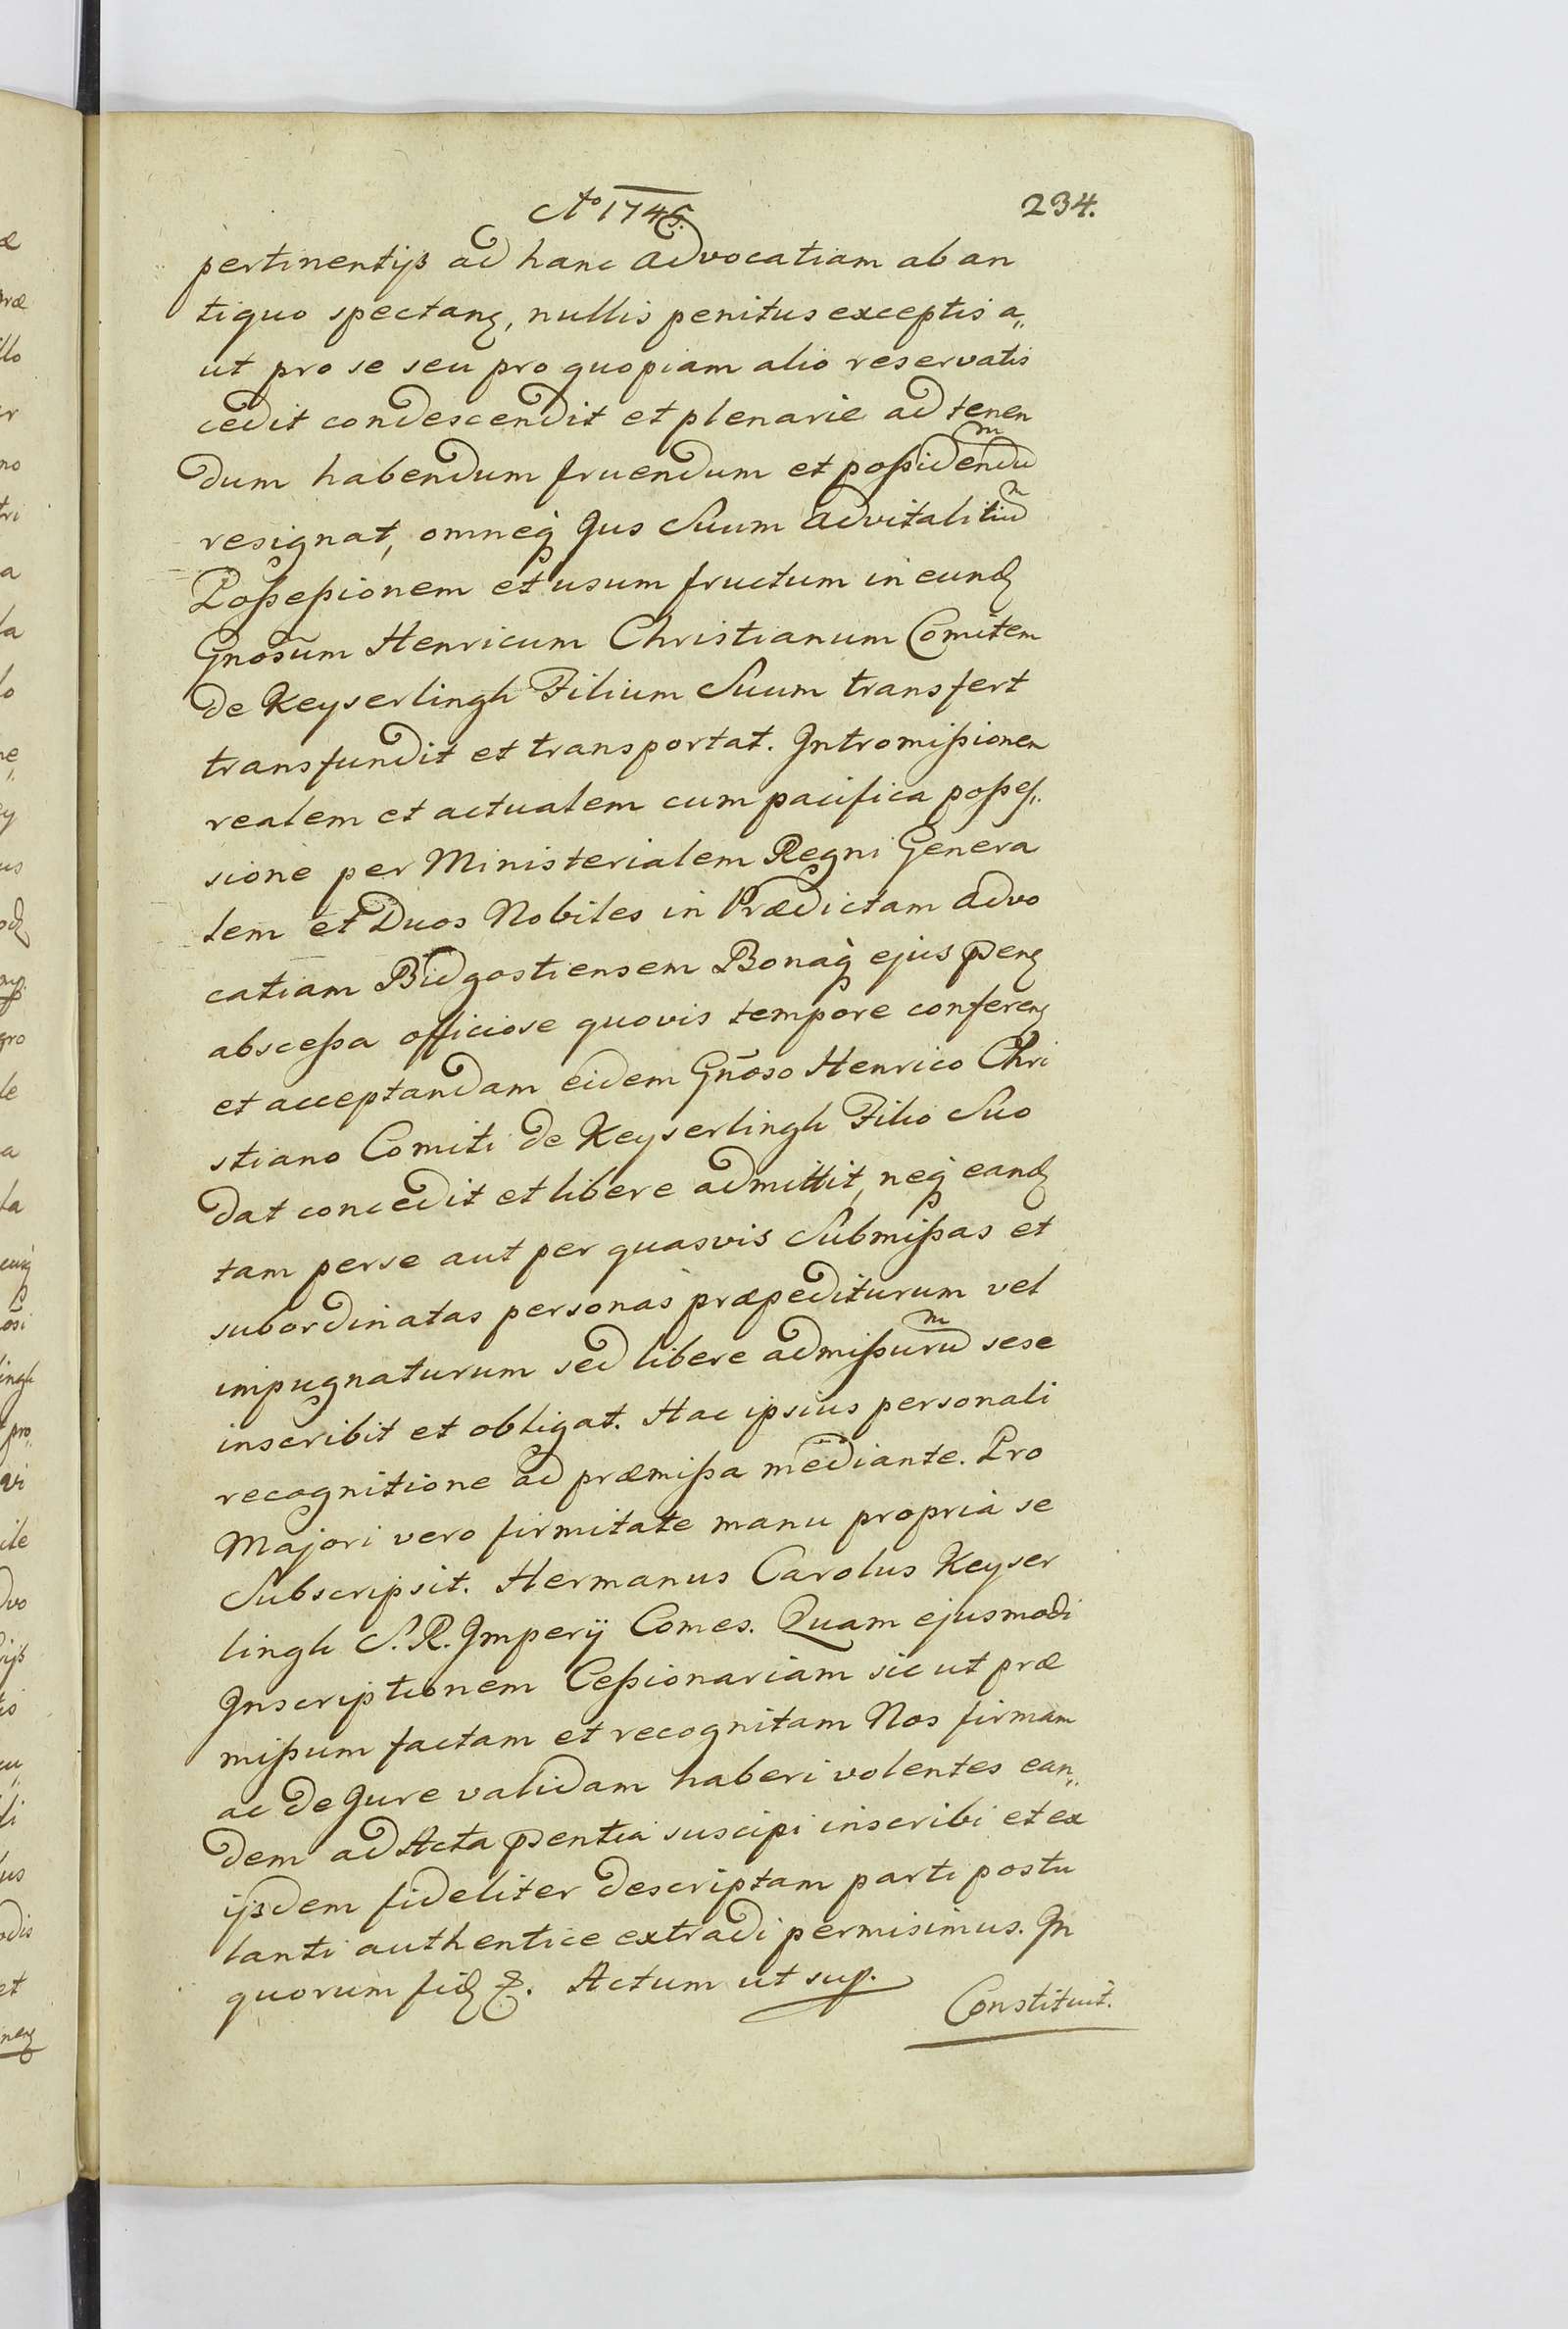 Aº 1746.
234.
pertinentijs ad hanc advocatiam ab an
tiquo spectanƺ, nullis penitus exceptis a„
ut pro se seu pro quopiam alio reservatis
cedit condescendit et plenarie ad tenen
dum habendum fruendum et poßidendum
resignat, omneq̀ Jus Suum advitalitium
Poßeßionem et usum fructum in eundƺ
Gnosũm Henricum Christianum Comitem
de Keyserlingh Filium Suum transfert
transfundit et transportat. Intromißionem
realem et actualem cum pacifica poßeſ„
sione per Ministerialem Regni Genera
lem et Duos Nobiles in Prædictam advo
catiam Bidgostiensem Bonaq̀ ejus ꝑenƺ
absceßa officiose quovis tempore conferenƺ
et acceptandam eidem Gnõso Henrico Chri
stiano Comiti de Keyserlingh Filio Suo
dat concedit et libere admittit, neq̀ eandƺ
tam per se aut per quasvis Submißas et
subordinatas personas præpediturum vel
impugnaturum sed libere admißurum sese
inscribit et obligat. Hac ipsius personali
recognitione ad præmißa mediante. Pro
Majori vero firmitate manu propria se
Subscripsit. Hermanus Carolus Keyser
lingh S. R. Imperij Comes. Quam ejusmodi
Inscriptionem Ceßionariam sic ut præ
mißum factam et recognitam Nos firmam
ac de Jure validam haberi volentes ean„
dem ad Acta ꝑsentia suscipi inscribi et ex
ijsdem fideliter descriptam parti postu
lanti authentice extradi permisimus. In
quorum fidƺ &. Actum ut sup.
Constituit.